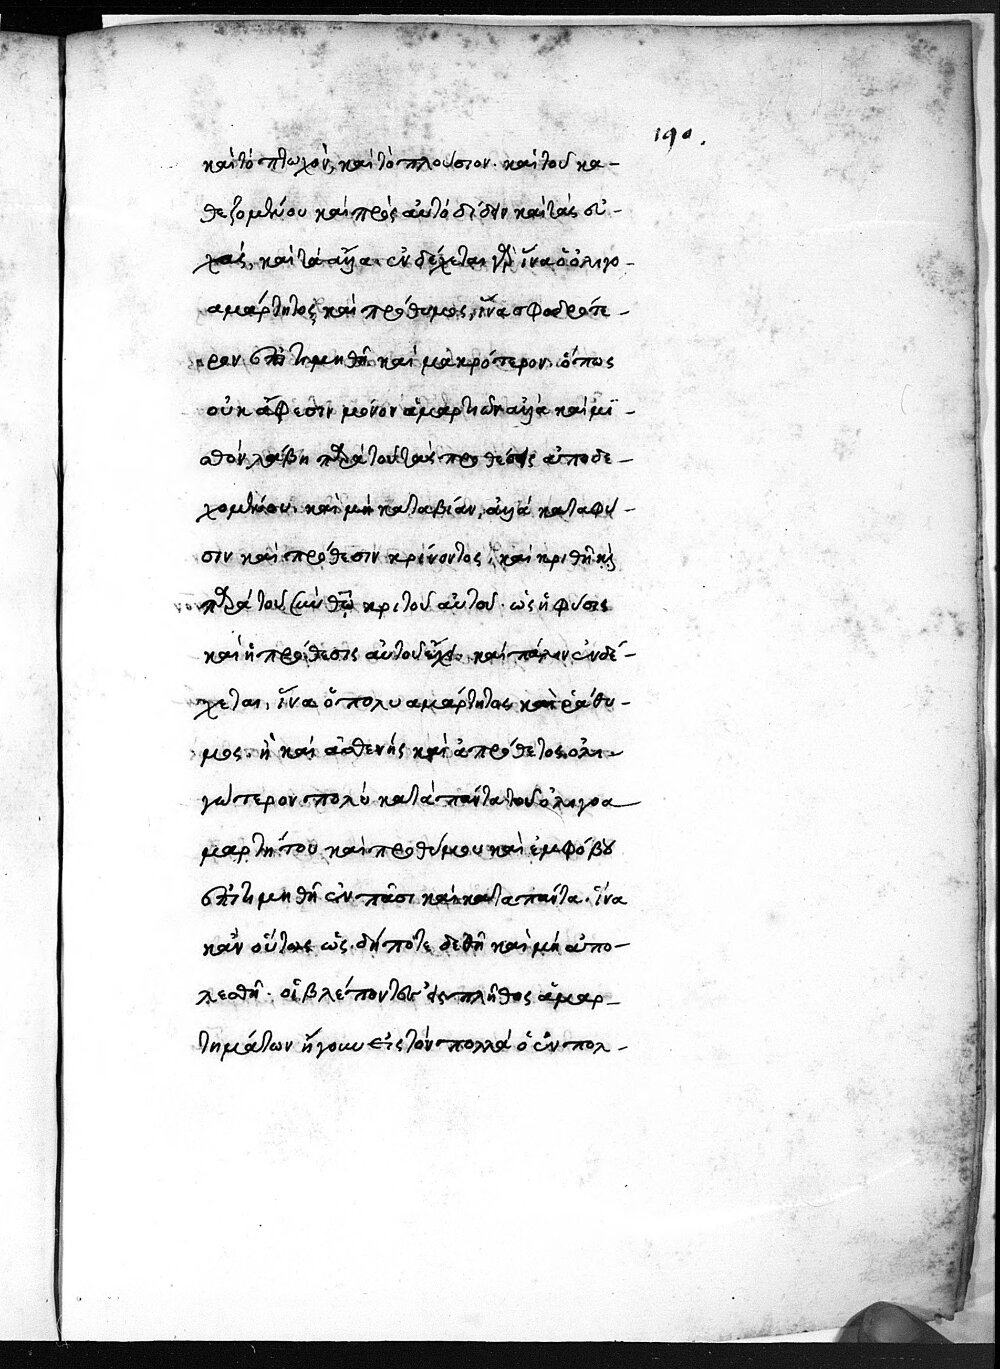 190.
καὶ τὸ πτωχὸν, καὶ τὸ πλούσιον. καὶ τοῦ κα-
θεζομένου καὶ πρὸς αὐτὸ καὶ τὰς
καὶ τὰ ἄλλα. ἐνδέχεται γὰρ ἵνα ὁ ὀλιγο-
αμάρτητος καὶ πρόθυμος, ἵνα σφοδρότε-
ρον ἐπιτιμηθῆ καὶ μακρότερον. ὅπως
οὐκ ἄφεσιν μόνον ἁμαρτιῶν ἀλλὰ καὶ μι-
σθὸν λάβη παρὰ τοῦ τὰς προθέσεις ἀποδε-
χομένου. καὶ μὴ κατὰ βίαν, ἀλλὰ κατὰ φύ-
σιν καὶ πρόθεσιν κρίνοντος. καὶ κριθῆ κὶ
παρὰ τοῦ κριτοῦ αὐτοῦ. ὡς ἡ φύσις
καὶ ἡ πρόθεσις αὐτοῦ ἔχει. καὶ πάλιν ἐνδέ-
χεται, ἵνα ὁ πολυαμάρτητος καὶ ῥάθυ-
μος. ἢ καὶ ἀσθενὴς καὶ ἀπρόθετος ὀλι-
γώτερον πολὺ κατὰ πάντα τοῦ ὀλιγοα
μαρτήτου καὶ προθύμου καὶ ἐμφόβου
ἐπιτιμηθῆ ἐν πᾶσι καὶ κατὰ πάντα. ἵνα
κἂν οὕτως ὡς δήποτε δεθῆ καὶ μὴ ἀπο-
λεσθῆ. οἱ βλέποντες εἰς πλῆθος ἁμαρ-
τημάτων ἤγουν εἰς τὸν πολλὰ ὁ ἐν πολ-